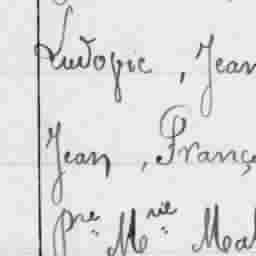 Ludovic, Jean
Jean, Franç
pre Mrie Mal